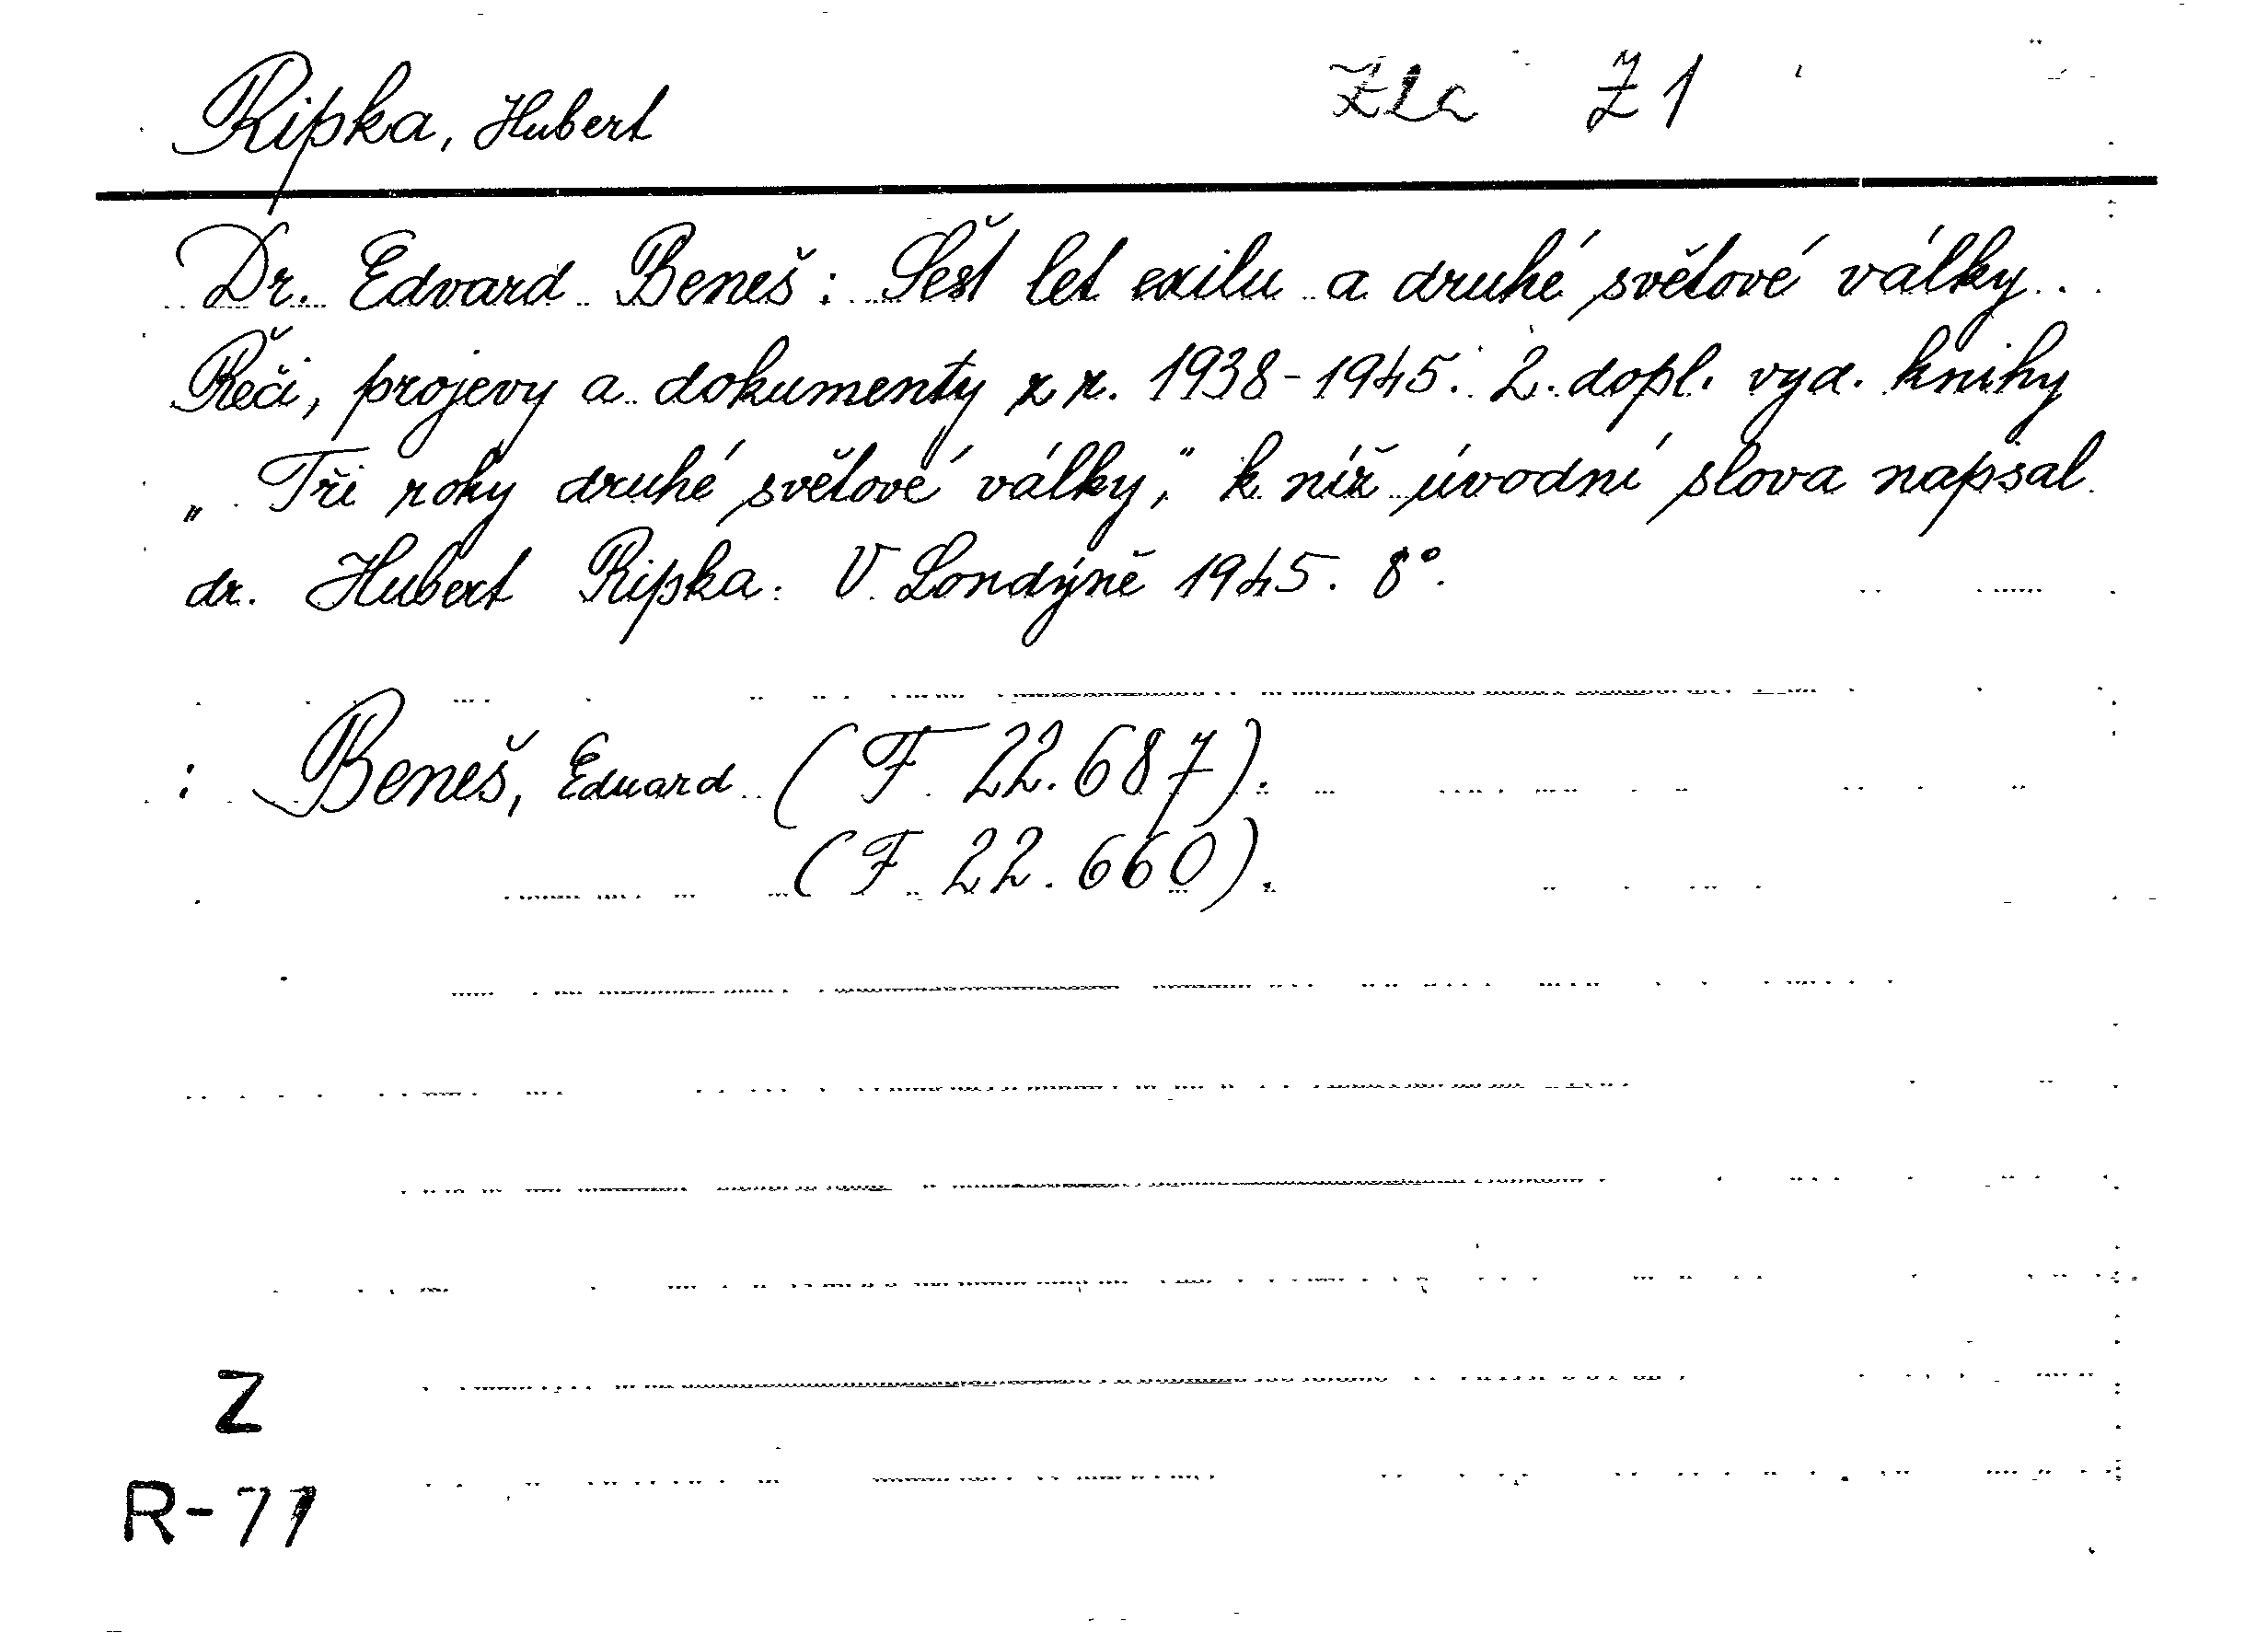 Ripka, Hubert Z1c Z1
Dr. Edvard Beneš: Šest let exilu a druhé světové války.
Řeči, projevy a dokumenty z r. 1938-1945. 2. dopl. vyd. knihy
„Tři roky druhé světové války," k níž úvodní slova napsal
dr. Hubert Ripka. V Londýně 1945. 8°.
: Beneš, Eduard (F 22.687).
(F 22.660).
Z
R-77